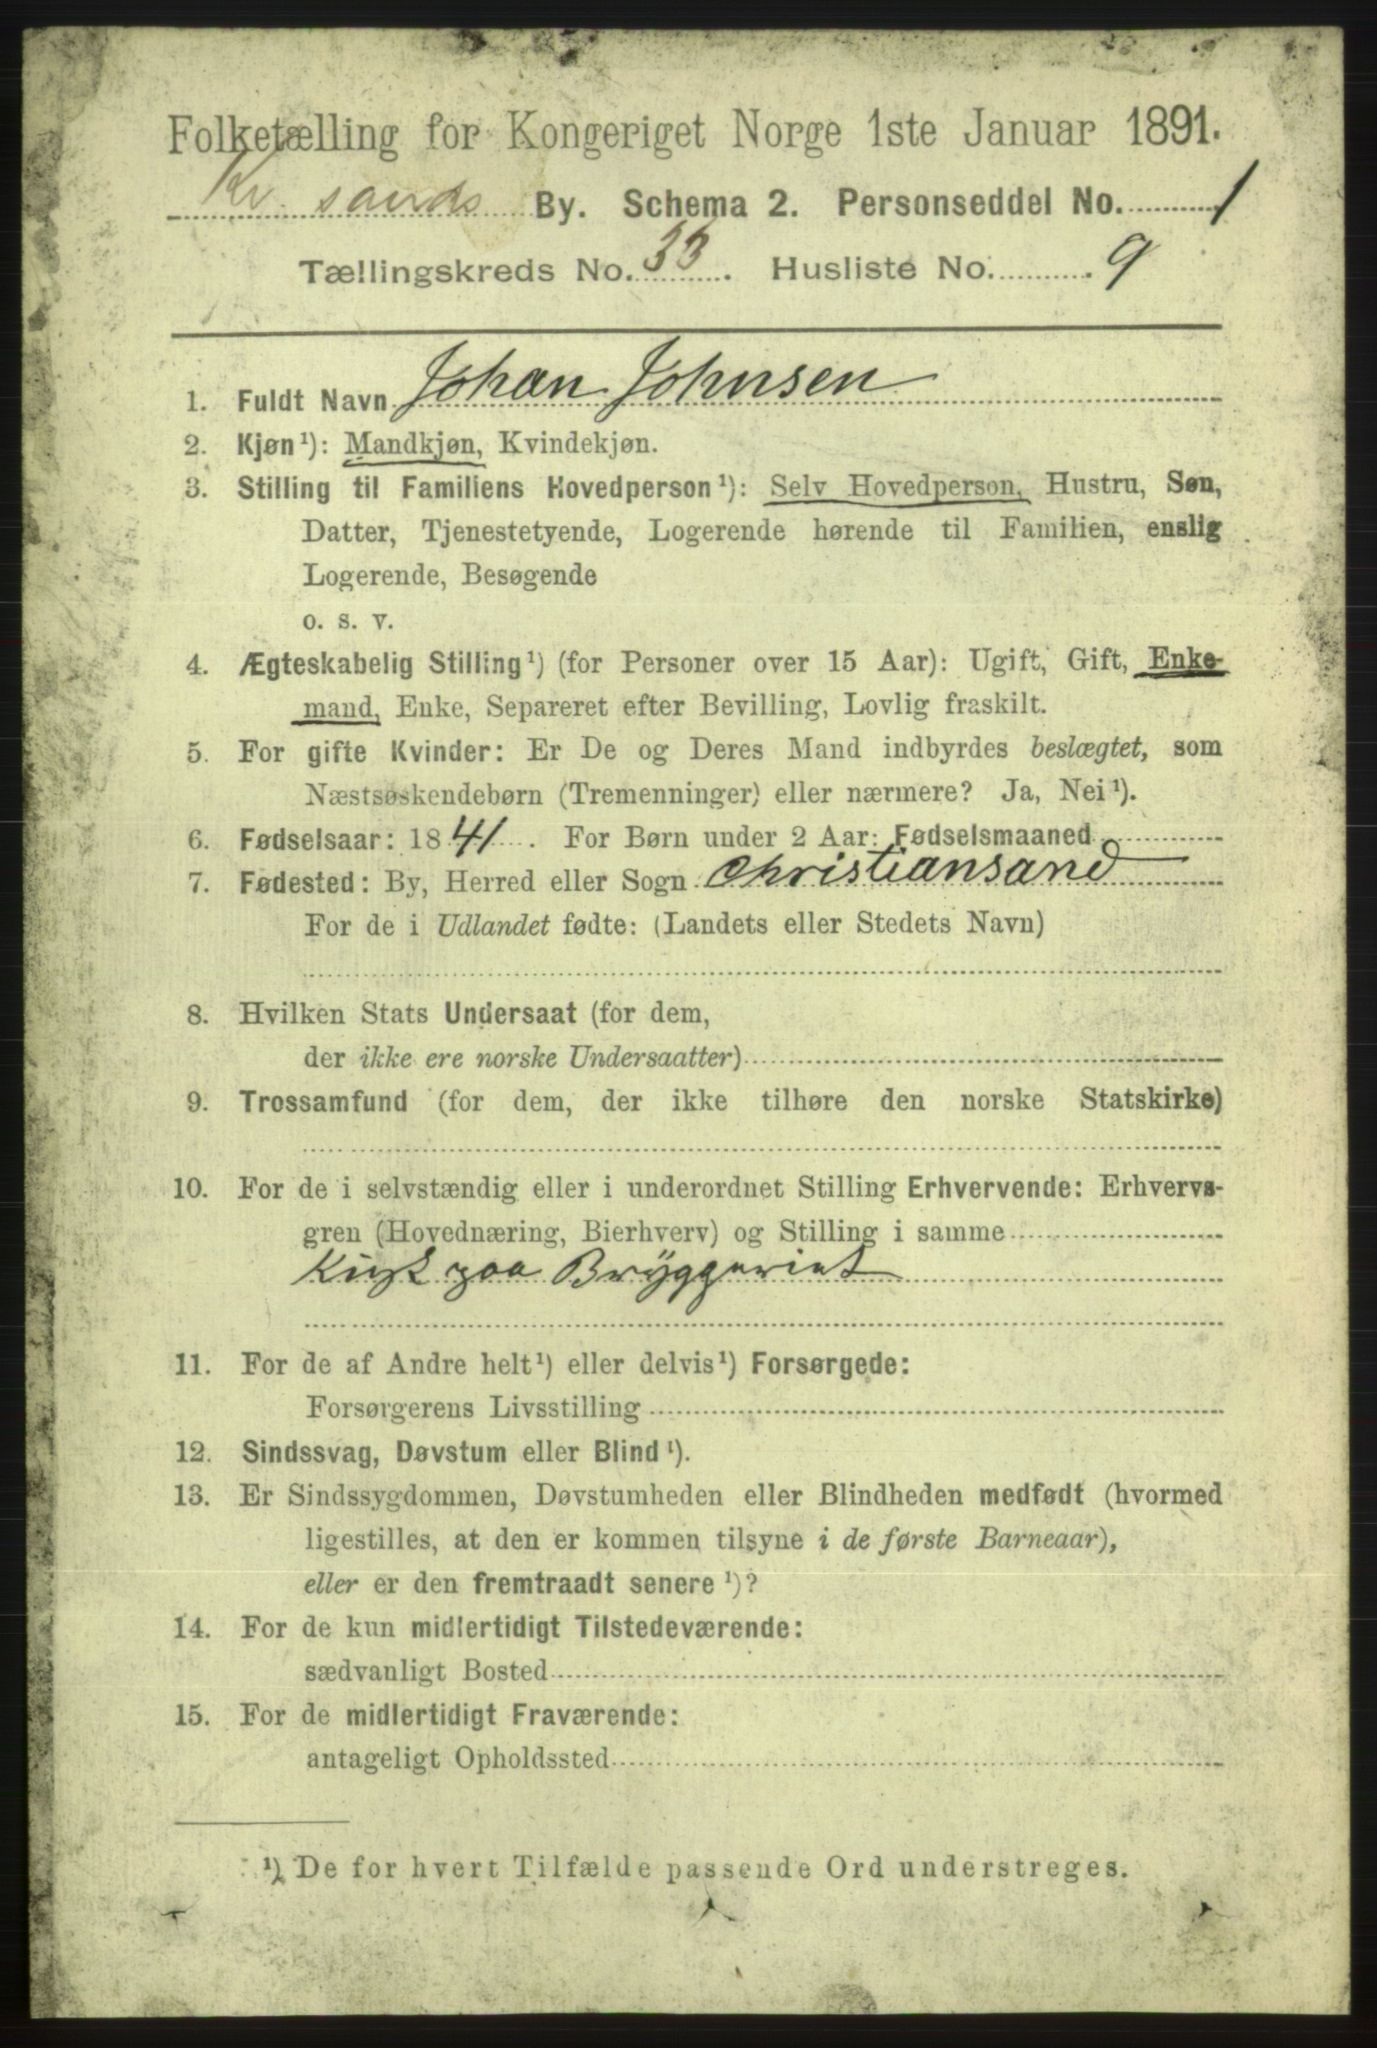 Folketælling for Kongeriget Norge 1ste Januar 1891.
Kr. sands By. Schema 2. Personseddel No. 1
Tællingskreds No. 33. Husliste No. 9
1. Fuldt Navn Johan Johnsen
2. Kjøn¹): Mandkjøn, Kvindekjøn.
3. Stilling til Familiens Hovedperson¹): Selv Hovedperson, Hustru, Søn,
Datter, Tjenestetyende, Logerende hørende til Familien, enslig
Logerende, Besøgende
o. s. v.
4. Ægteskabelig Stilling¹) (for Personer over 15 Aar): Ugift, Gift, Enke-
mand, Enke, Separeret efter Bevilling, Lovlig fraskilt.
5. For gifte Kvinder: Er De og Deres Mand indbyrdes beslægtet, som
Næstsøskendebørn (Tremenninger) eller nærmere? Ja, Nei¹).
6. Fødselsaar: 1841. For Børn under 2 Aar: Fødselsmaaned
7. Fødested: By, Herred eller Sogn Christiansand
For de i Udlandet fødte: (Landets eller Stedets Navn)
8. Hvilken Stats Undersaat (for dem,
der ikke ere norske Undersaatter)
9. Trossamfund (for dem, der ikke tilhøre den norske Statskirke)
10. For de i selvstændig eller i underordnet Stilling Erhvervende: Erhvervs-
gren (Hovednæring, Bierhverv) og Stilling i samme
Kusk paa Bryggeriet
11. For de af Andre helt¹) eller delvis¹) Forsørgede:
Forsørgerens Livsstilling
12. Sindssvag, Døvstum eller Blind¹).
13. Er Sindssygdommen, Døvstumheden eller Blindheden medfødt (hvormed
ligestilles, at den er kommen tilsyne i de første Barneaar),
eller er den fremtraadt senere¹)?
14. For de kun midlertidigt Tilstedeværende:
sædvanligt Bosted
15. For de midlertidigt Fraværende:
antageligt Opholdssted
¹) De for hvert Tilfælde passende Ord understreges.